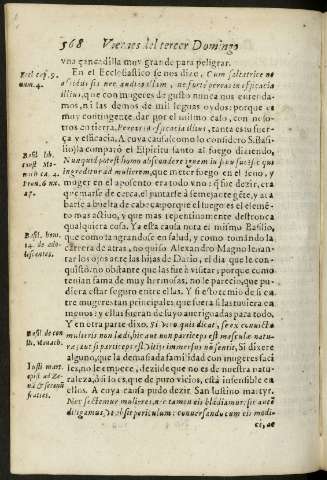 568 Viernes del tercer Domingo
vna çancadilla muy grande para peligrar.
Eccl cap. 9. num. 4.
En el Ecclesiastico se nos dize, Cum saltatrice ne
assiduus sis nec audias illam, ne forte pereas in efficacia
illius, que con mugeres de gusto nunca nos entenda-
mos, ni las demos de mil leguas oydos: porque es
muy contingente dar por el mismo caso, con noso-
tros en tierra, Pereas in efficacia illius, tanta es su fuer-
ça y efficacia. A cuya causa como lo considero S. Basi-
lio, la comparó el Espiritu santo al fuego diziendo,
Nunquid potest homo abscondere ignem in sinu suo? sic qui
ingreditur ad mulierem, que meter fuego en el seno, y
muger en el aposento era todo vno: que fue dezir, era
quemarse de cerca, el pararse a semejante gête, y aca
barse a buelta de cabeça, porque el fuego es el elemê-
to mas actiuo, y que mas repentinamente destronca
qualquiera cosa. Ya esta causa nota el mismo Basilio,
que como tan grande en salud, y como tomando la
carrera de atras, no quiso Alexandro Magno leuan-
tar los ojos ante las hijas de Dario, el dia que le con-
quistò, no obstante que las fue à visitar: porque como
tenian fama de muy hermosas, no le parecio, que pu-
diera estar seguro entre ellas. Y si esto temio de si en
tre mugeres tan principales, que fuera si las tuuiera en
menos: y ellas fueran de suyo auerigadas para todo.
Y en otra parte dize, Si vero quis dicat, se ex conuictu
mulieris non laedi, hic aut non particeps est masculae natu-
rae, aut si particeps est, Vitij immersus non sentit, Si dixere
alguno, que la demasiada familiaridad con mugeres faci-
les, no le empece, dezilde que no es de nuestra natu-
raleza, ò si lo es, que de puro vicios, està insensible en
ellos. A cuya causa pudo dezir San Iustino martyr,
Nec sectemur mulieres, nec tamen eis blandiamur: sit autê
diligamus, Vt absit periculum: conuersandum eis modi-
ce, ac
Basil. lib.
Basil. hom. 14.
Basil de con st. Monach.
Iusti mart.